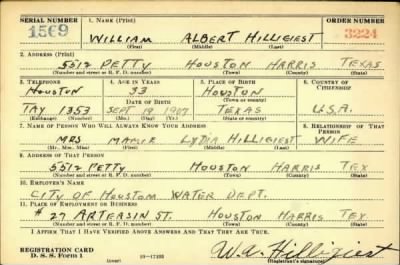 SERIAL NUMBER 1. NAME (Print) ORDER NUMBER
1569 WILLIAM ALBERT HILLIGIEST 3224
(First) (Middle) (Last)
2. ADDRESS (Print)
5512 PETTY HOUSTON HARRIS TEXAS
(Number and street or R. F. D. number) (Town) (County) (State)
3. TELEPHONE 4. AGE IN YEARS 5. PLACE OF BIRTH 6. COUNTRY OF CITIZENSHIP
HOUSTON 33 HOUSTON
DATE OF BIRTH (Town or county)
TAY 1353 SEPT 19 1907 TEXAS U.S.A.
(Exchange) (Number) (Mo.) (Day) (Yr.) (State or country)
7. NAME OF PERSON WHO WILL ALWAYS KNOW YOUR ADDRESS 8. RELATIONSHIP OF THAT PERSON
MRS MAMIE LYDIA HILLIGIEST WIFE
(Mr., Mrs., Miss) (First) (Middle) (Last)
9. ADDRESS OF THAT PERSON
5512 PETTY HOUSTON HARRIS TEX
(Number and street or R. F. D. number) (Town) (County) (State)
10. EMPLOYER'S NAME
CITY OF HOUSTON WATER DEPT.
11. PLACE OF EMPLOYMENT OR BUSINESS
# 27 ARTEASIN ST. HOUSTON HARRIS TEX
(Number and street or R. F. D. number) (Town) (County) (State)
I AFFIRM THAT I HAVE VERIFIED ABOVE ANSWERS AND THAT THEY ARE TRUE.
REGISTRATION CARD
D. S. S. FORM 1 (over) 16-17105 W. A. Hilligiest
(Registrant's signature)